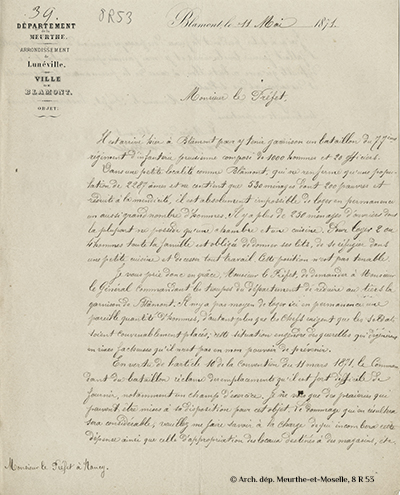 39.
8 R 53
DÉPARTEMENT
DE LA
MEURTHE.
ARRONDISSEMENT
DE
Lunéville.
VILLE
DE
BLAMONT.
OBJET:
Blamont le 11 Mai 1871.
Monsieur le Préfet,
Il est arrivé hier à Blâmont pour y tenir garnison un bataillon du 79ème
régiment d'infanterie prussienne composé de 1000 hommes et 20 officiers.
Dans une petite localité comme Blâmont, qui ne renferme qu'une popu-
lation de 2287 âmes et ne contient que 530 ménages dont 200 pauvres et
réduits à la mendicité, il est absolument impossible de loger en permanence
un aussi grand nombre d'hommes. Il y a plus de 250 ménages d'ouvriers dont
la plupart ne possède qu'une chambre et une cuisine. Pour loger 2 ou
4 hommes toute la famille est obligée de donner ses lits, de se réfugier dans
une petite cuisine et de cesser tout travail. Cette position n'est pas tenable.
Je vous prie donc en grâce, Monsieur le Préfet, de demander à Monsieur
le Général Commandant les troupes du département de réduire au tiers la
garnison de Blâmont. Il n'y a pas moyen de loger ici en permanence une
pareille quantité d'hommes, d'autant plus que les Chefs exigent que les soldats
soient convenablement placés; cette situation engendre des querelles qui dégénèrent
en rixes facheuses qu'il n'est pas en mon pouvoir de prévenir.
En vertu de l'article 16 de la Convention du 11 mars 1871, le Comman
dant du bataillon réclame des emplacements qu'il est fort difficile de
fournir, notamment un champ d'exercice. Je ne vois que des prairies qui
peuvent être mises à sa disposition pour cet objet, le dommage qui en résultera
sera considérable; veuillez me faire savoir à la charge de qui incombera cette
dépense ainsi que celle d'appropriation des locaux destinés à des magasins, etc.
Monsieur le Préfet à Nancy.
© Arch. dép. Meurthe-et-Moselle, 8 R 53